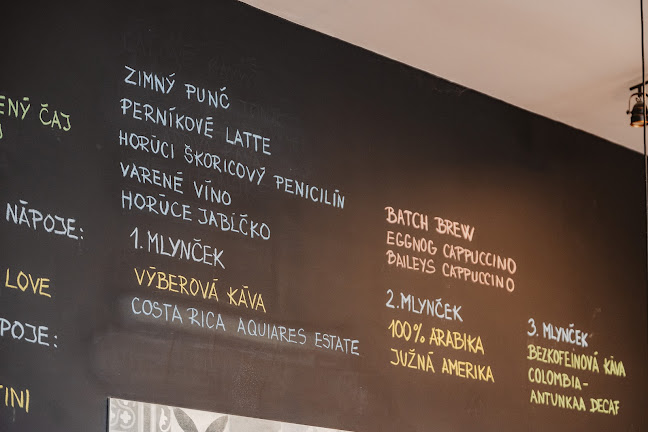 ENÝ ČAJ
NÁPOJE:
LOVE
POJE:
TINI
ZIMNÝ PUNČ
PERNÍKOVÉ LATTE
HORÚCI ŠKORICOVÝ PENICILÍN
VARENÉ VÍNO
HORÚCE JABĹČKO
1. MLYNČEK
VÝBEROVÁ KÁVA
COSTA RICA AQUIARES ESTATE
BATCH BREW
EGGNOG CAPPUCCINO
BAILEYS CAPPUCCINO
2. MLYNČEK
100% ARABIKA
JUŽNÁ AMERIKA
3. MLYNČEK
BEZKOFEÍNOVÁ KÁVA
COLOMBIA-
ANTUNKAA DECAF